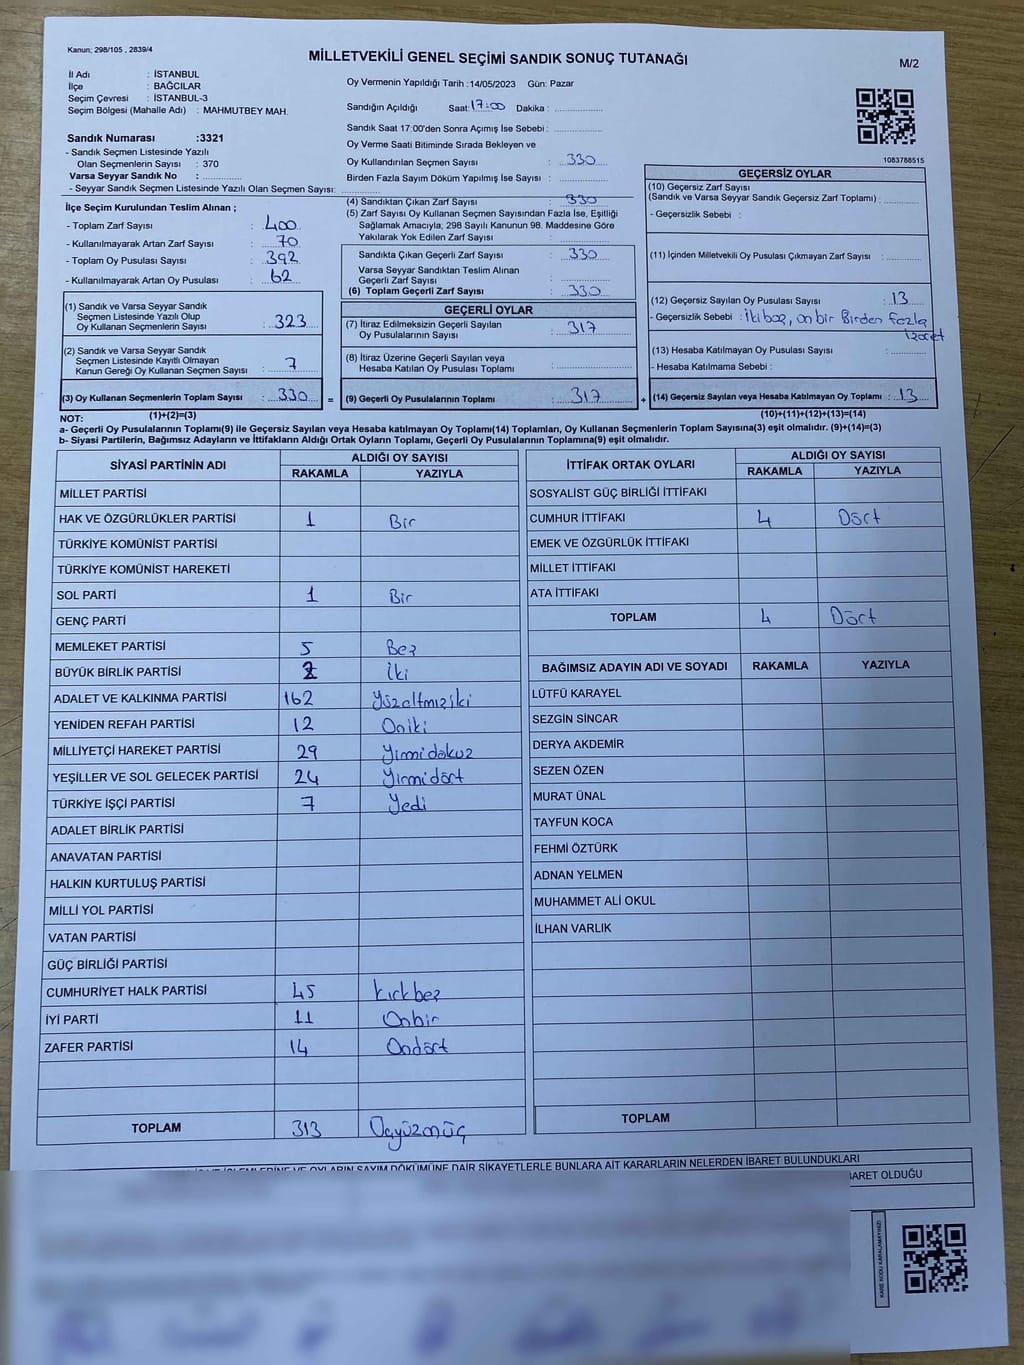 Kanun; 298/105 , 2839/4
MİLLETVEKİLİ GENEL SEÇİMİ SANDIK SONUÇ TUTANAĞI
M/2
İl Adı : İSTANBUL
İlçe : BAĞCILAR
Seçim Çevresi : İSTANBUL-3
Seçim Bölgesi (Mahalle Adı) : MAHMUTBEY MAH.
Sandık Numarası :3321
- Sandık Seçmen Listesinde Yazılı
Olan Seçmenlerin Sayısı : 370
Varsa Seyyar Sandık No :
- Seyyar Sandık Seçmen Listesinde Yazılı Olan Seçmen Sayısı:
Oy Vermenin Yapıldığı Tarih :14/05/2023 Gün: Pazar
Sandığın Açıldığı Saat: 17:00 Dakika :
Sandık Saat 17:00'den Sonra Açımış İse Sebebi :
Oy Verme Saati Bitiminde Sırada Bekleyen ve
Oy Kullandırılan Seçmen Sayısı : 330
Birden Fazla Sayım Döküm Yapılmış İse Sayısı :
1083788515
İlçe Seçim Kurulundan Teslim Alınan ;
- Toplam Zarf Sayısı : 400
- Kullanılmayarak Artan Zarf Sayısı : 70
- Toplam Oy Pusulası Sayısı : 392
- Kullanılmayarak Artan Oy Pusulası : 62
(1) Sandık ve Varsa Seyyar Sandık
Seçmen Listesinde Yazılı Olup
Oy Kullanan Seçmenlerin Sayısı : 323
(2) Sandık ve Varsa Seyyar Sandık
Seçmen Listesinde Kayıtlı Olmayan
Kanun Gereği Oy Kullanan Seçmen Sayısı : 7
(3) Oy Kullanan Seçmenlerin Toplam Sayısı : 330 =
(1)+(2)=(3)
(4) Sandıktan Çıkan Zarf Sayısı : 330
(5) Zarf Sayısı Oy Kullanan Seçmen Sayısından Fazla İse, Eşitliği
Sağlamak Amacıyla; 298 Sayılı Kanunun 98. Maddesine Göre
Yakılarak Yok Edilen Zarf Sayısı :
Sandıkta Çıkan Geçerli Zarf Sayısı : 330
Varsa Seyyar Sandıktan Teslim Alınan
Geçerli Zarf Sayısı :
(6) Toplam Geçerli Zarf Sayısı : 330
GEÇERLİ OYLAR
(7) İtiraz Edilmeksizin Geçerli Sayılan
Oy Pusulalarının Sayısı : 317
(8) İtiraz Üzerine Geçerli Sayılan veya
Hesaba Katılan Oy Pusulası Toplamı :
(9) Geçerli Oy Pusulalarının Toplamı : 317 +
GEÇERSİZ OYLAR
(10) Geçersiz Zarf Sayısı
(Sandık ve Varsa Seyyar Sandık Geçersiz Zarf Toplamı) :
- Geçersizlik Sebebi :
(11) İçinden Milletvekili Oy Pusulası Çıkmayan Zarf Sayısı :
(12) Geçersiz Sayılan Oy Pusulası Sayısı : 13
- Geçersizlik Sebebi : İki boş, on bir Birden fazla
işaret
(13) Hesaba Katılmayan Oy Pusulası Sayısı :
- Hesaba Katılmama Sebebi :
(14) Geçersiz Sayılan veya Hesaba Katılmayan Oy Toplamı : 13
(10)+(11)+(12)+(13)=(14)
NOT:
a- Geçerli Oy Pusulalarının Toplamı(9) ile Geçersiz Sayılan veya Hesaba katılmayan Oy Toplamı(14) Toplamları, Oy Kullanan Seçmenlerin Toplam Sayısına(3) eşit olmalıdır. (9)+(14)=(3)
b- Siyasi Partilerin, Bağımsız Adayların ve İttifakların Aldığı Ortak Oyların Toplamı, Geçerli Oy Pusulalarının Toplamına(9) eşit olmalıdır.
SİYASİ PARTİNİN ADI ALDIĞI OY SAYISI
RAKAMLA YAZIYLA
MİLLET PARTİSİ
HAK VE ÖZGÜRLÜKLER PARTİSİ 1 Bir
TÜRKİYE KOMÜNİST PARTİSİ
TÜRKİYE KOMÜNİST HAREKETİ
SOL PARTİ 1 Bir
GENÇ PARTİ
MEMLEKET PARTİSİ 5 Beş
BÜYÜK BİRLİK PARTİSİ 2 İki
ADALET VE KALKINMA PARTİSİ 162 Yüzaltmışiki
YENİDEN REFAH PARTİSİ 12 Oniki
MİLLİYETÇİ HAREKET PARTİSİ 29 Yirmidokuz
YEŞİLLER VE SOL GELECEK PARTİSİ 24 Yirmidört
TÜRKİYE İŞÇİ PARTİSİ 7 Yedi
ADALET BİRLİK PARTİSİ
ANAVATAN PARTİSİ
HALKIN KURTULUŞ PARTİSİ
MİLLİ YOL PARTİSİ
VATAN PARTİSİ
GÜÇ BİRLİĞİ PARTİSİ
CUMHURİYET HALK PARTİSİ 45 Kırkbeş
İYİ PARTİ 11 Onbir
ZAFER PARTİSİ 14 Ondört
TOPLAM 313 Üçyüzonüç
İTTİFAK ORTAK OYLARI ALDIĞI OY SAYISI
RAKAMLA YAZIYLA
SOSYALIST GÜÇ BİRLİĞİ İTTİFAKI
CUMHUR İTTİFAKI 4 Dört
EMEK VE ÖZGÜRLÜK İTTİFAKI
MİLLET İTTİFAKI
ATA İTTİFAKI
TOPLAM 4 Dört
BAĞIMSIZ ADAYIN ADI VE SOYADI RAKAMLA YAZIYLA
LÜTFÜ KARAYEL
SEZGİN SİNCAR
DERYA AKDEMİR
SEZEN ÖZEN
MURAT ÜNAL
TAYFUN KOCA
FEHMİ ÖZTÜRK
ADNAN YELMEN
MUHAMMET ALİ OKUL
İLHAN VARLIK
TOPLAM
İŞLEMLERİNE VE OYLARIN SAYIM DÖKÜMÜNE DAİR ŞİKAYETLERLE BUNLARA AİT KARARLARIN NELERDEN İBARET BULUNDUKLARI
BARET OLDUĞU
KARE KODU KARALAMAYINIZ!